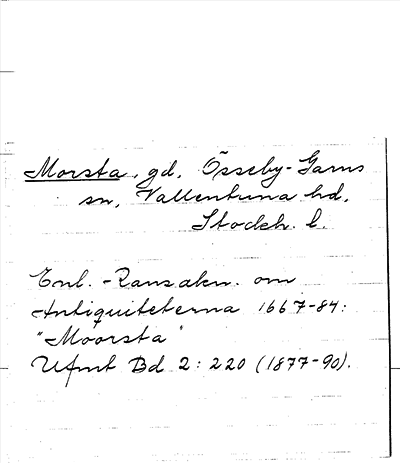 Morsta, gd, Össeby-Garns
sn, Vallentuna hd,
Stockh. l.
Enl. - Ransakn. om
Antiquiteterna 1667-84:
"Moorsta"
Ufmt Bd 2: 220 (1877-90).